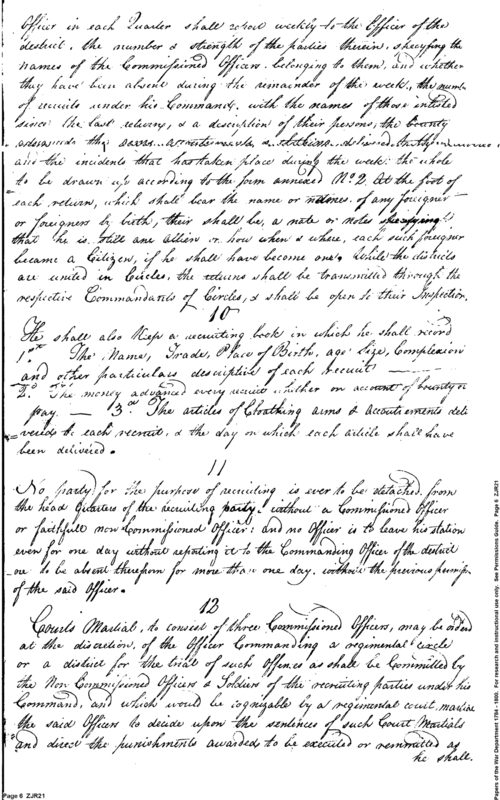 Officer in each Quarter shall return weekly to the Officer of the
district, the number & strength of the parties therein, specifying the
names of the Commissioned Officers belonging to them, and whether
they have been absent during the remainder of the week, the number
of recruits under his Command, with the names of those enlisted
since the last return, & a description of their persons, the bounty
advanced, the arms, accoutrements & clothing delivered
and the incidents that has taken place during the week: the whole
to be drawn up according to the form annexed No 2. At the foot of
each return, which shall bear the name or names of any foreigner
or foreigners by birth, their shall be, a note or notes specifying
that he is still an Alien or how when & where, each such foreigner
became a Citizen, if he shall have become one. While the districts
are united in Circles, the returns shall be transmitted through the
respective Commandants of Circles, & shall be open to their Inspection.
10
He shall also Keep a recruiting book in which he shall record
1st The Name, Trade, Place of Birth, age, Size, Complexion
and other particulars descriptive of each recruit
2d The money advanced every recruit whither on account of bounty or
pay. — 3d The articles of Cloathing arms & accoutrements deli
=vered to each recruit, & the day on which each article shall have
been delivered.
11
No party for the purpose of recruiting is ever to be detached from
the head Quarters of the recruiting party, without a Commissioned Officer
or faithfull non Commissioned Officer: and no Officer is to leave his station
even for one day without reporting it to the Commanding Officer of the district
nor to be absent therefrom for more than one day, without the previous permission
of the said Officer.
12
Courts Martial, to consist of three Commissioned Officers, may be ordered
at the discretion, of the Officer Commanding a regimental circle
or a district for the trial of such offences as shall be Committed by
the Non Commissioned Officers & Soldiers of the recruiting parties under his
Command, and which would be cognizable by a regimental court martial
the said Officers to decide upon the sentences of such Court Martials
and direct the punishments awarded to be executed or remmitted as
he shall.
Page 6 ZJR21
Papers of the War Department 1784 - 1800. For research and instructional use only. See Permissions Guide. Page 6 ZJR21